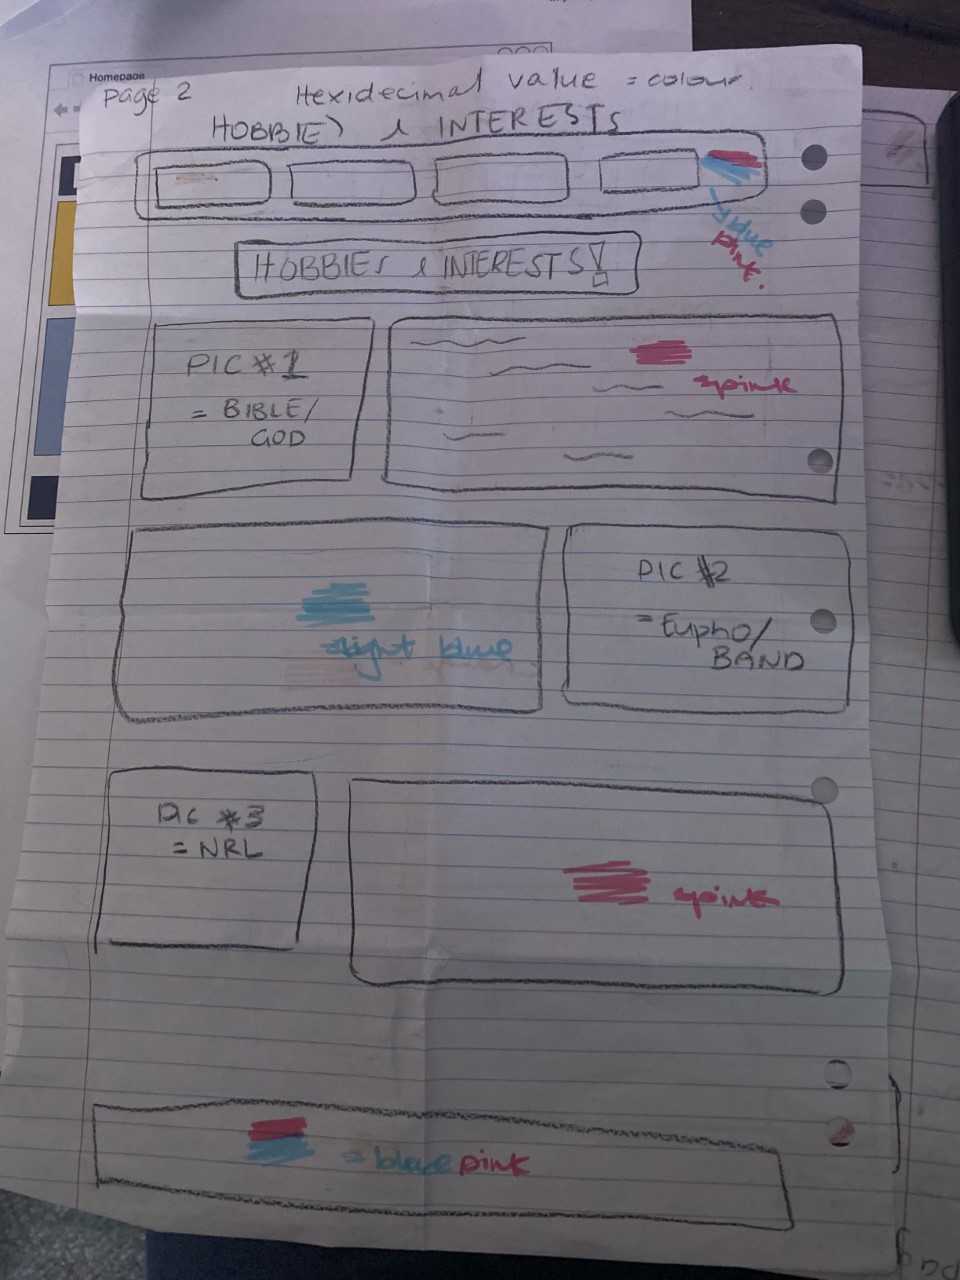 Homepage
Page 2
Hexidecimal value = colour
HOBBIES & INTERESTS
blue
pink.
HOBBIES & INTERESTS!
PIC #1
= BIBLE/
GOD
pink
PIC #2
= Eupho/
BAND
light blue
PIC #3
= NRL
pink
= blue pink